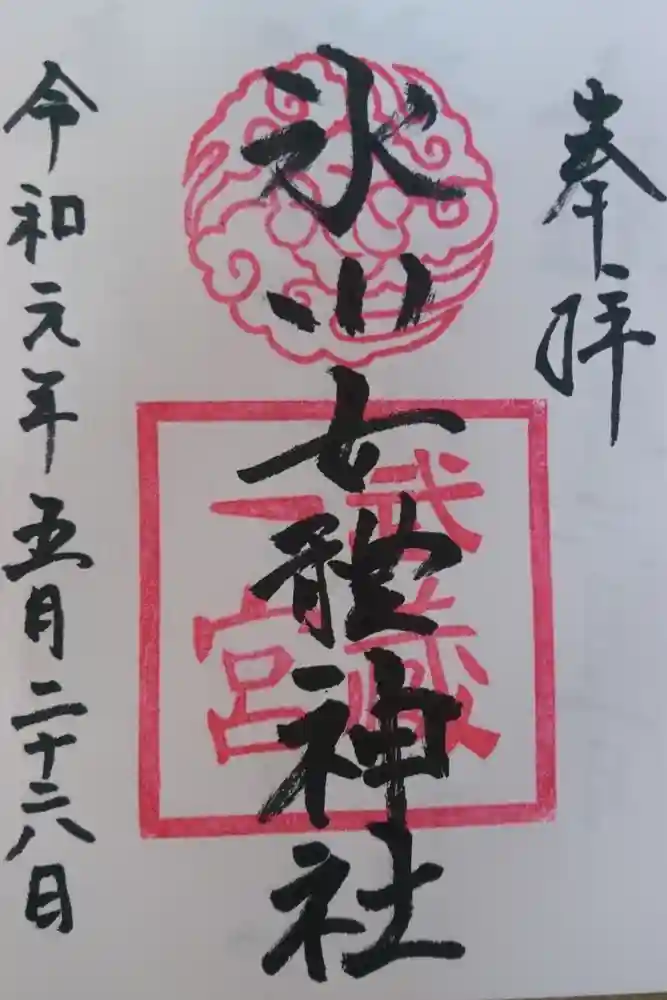 奉拝
氷川女體神社
武蔵
一宮
令和元年五月二十六日